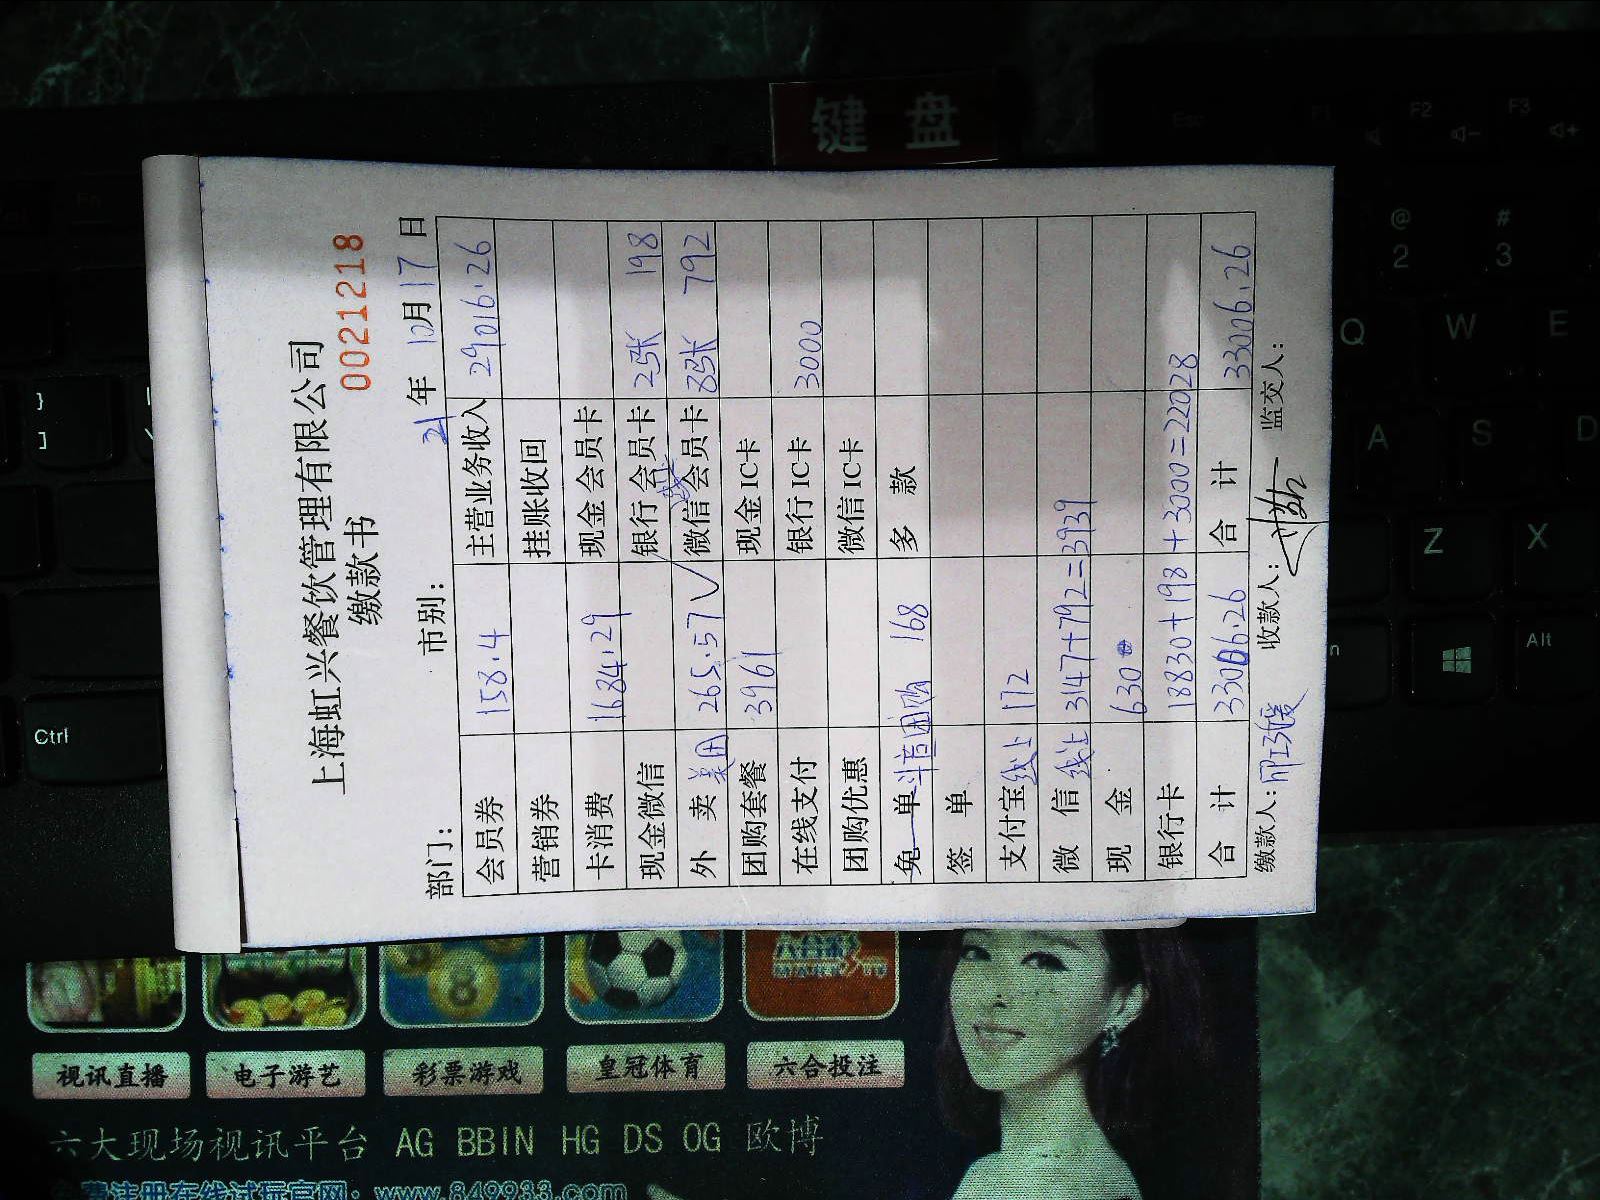 键 盘
上海虹兴餐饮管理有限公司
缴款书 0021218
部门： 市别： 21年 10月17日
会员券 158.4 主营业务收入 29016.26
营销券 挂账收回
卡消费 1684.29 现金会员卡
现金微信 银行会员卡 2张 198
外 卖 美团 265.57 √ 微信会员卡 8张 792
团购套餐 3961 现金IC卡
在线支付 银行IC卡 3000
团购优惠 微信IC卡
免单 抖音团购 168 多 款
签 单
支付宝 线上 172
微 信 线上 3147+792=3939
现 金 630
银行卡 18830+198+3000=22028
合 计 33006.26 合 计 33006.26
缴款人： 收款人： 监交人：
Esc F1 F2 F3
Fn
@ 2 # 3
Q W E
A S D
Z X
Ctrl
Alt
} ]
视讯直播 电子游艺 彩票游戏 皇冠体育 六合投注
六大现场视讯平台 AG BBIN HG DS OG 欧博
免费注册在线试玩官网：www.849933.com